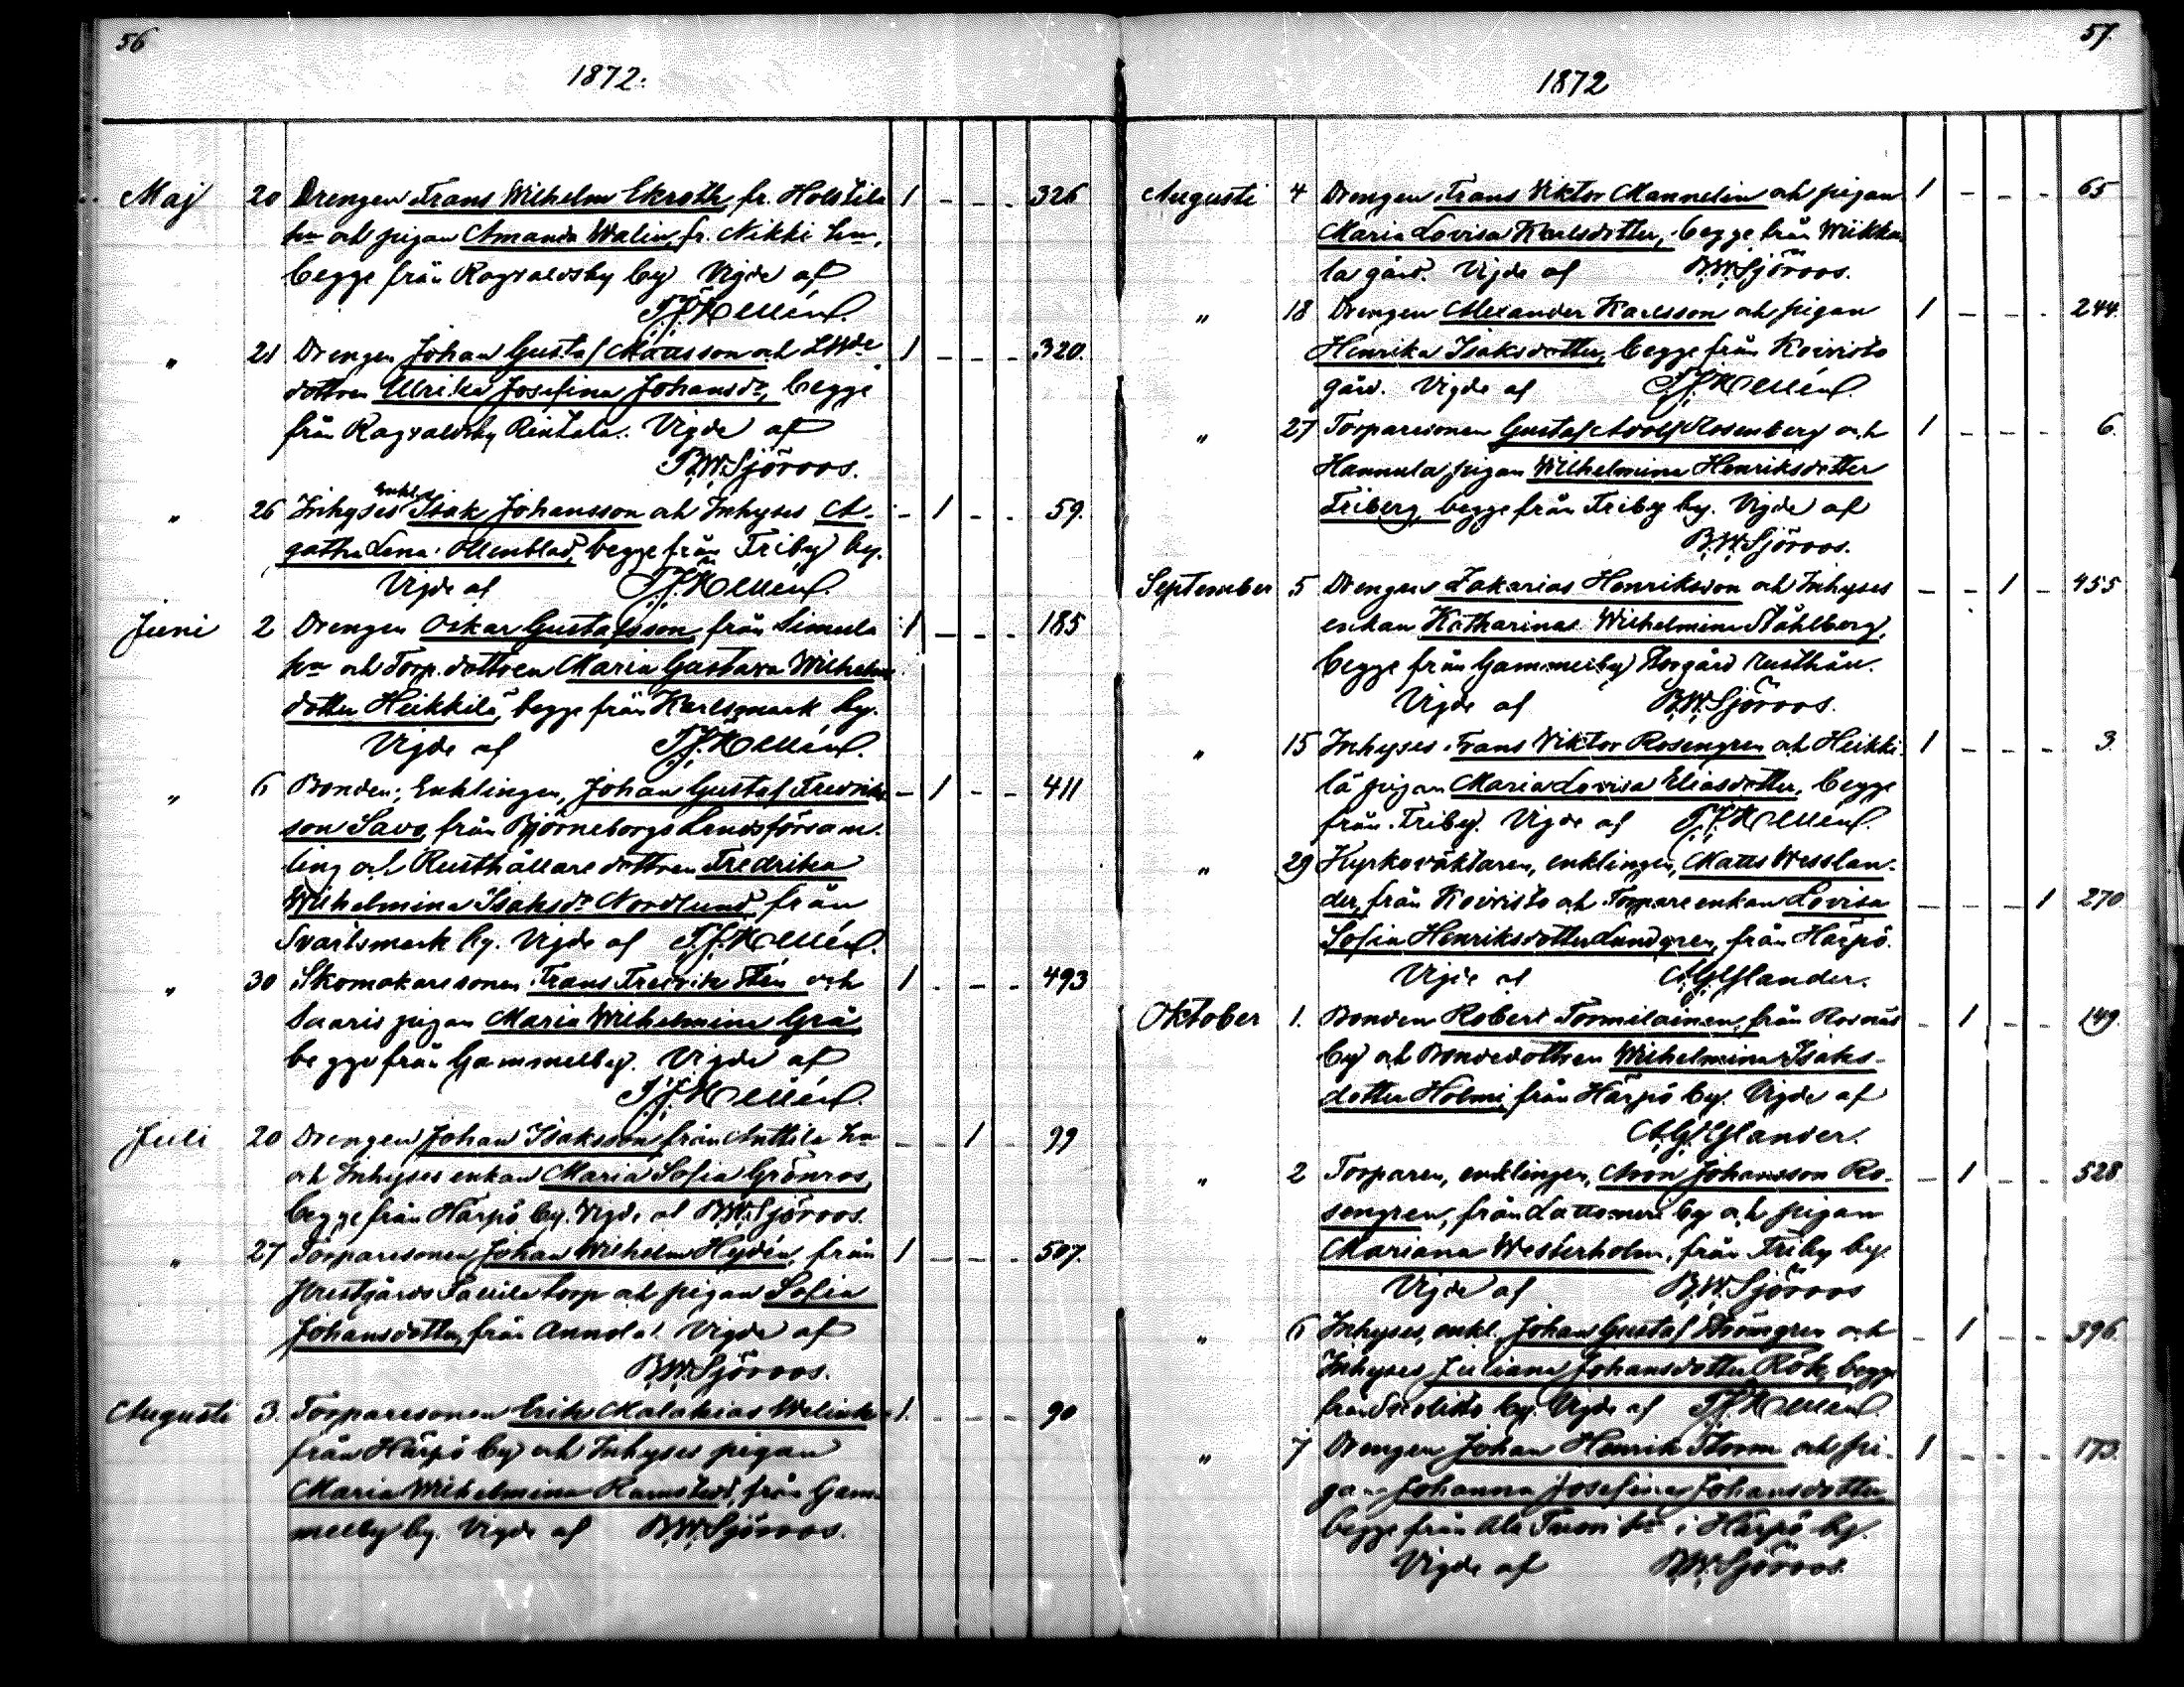 56
1872.
Maj 20 Drengen Frans Wilhelm Ekroth, fr. Holstila 1 - - - 326
hn och pigan Amanda Walin, fr. Nikki hn,
begge från Ragvaldsby by. Vigde af
T.J. Hellén.
" 21 Drengen Johan Gustaf Mattsson och 1 - - - 320.
dottren Ulrika Josefina Johansdr, begge
från Ragvaldsby Rintala. Vigde af
B.W. Sjöroos.
enkl.
" 26 Inhyses Isak Johansson och Inhyses A- - 1 - - 59.
gatha Lena Ollenblad, begge från Friby by.
Vigde af T.J. Hellén.
Juni 2 Drengen Oskar Gustafsson från Simula 1 - - - 185
hn och Torp. dottren Maria Gustava Wilhelms
dotter Heikkilä, begge från Karlsmark by.
Vigde af T.J. Hellén.
" 6 Bonden, Enklingen, Johan Gustaf Fredriks- - 1 - - 411
son Savo, från Björneborgs Landsförsam-
ling och Rusthållare dottren Fredrika
Wilhelmina Isaksdr Nordlund från
Svartsmark by. Vigde af T.J. Hellén.
" 30 Skomakaresonen Frans Fredrik Sten och 1 - - - 493
Saaris pigan Maria Wilhelmina Grå
begge från Gammelby. Vigde af
T.J. Hellén.
Juli 20 Drengen Johan Isaksson från Anttila hn - - 1 - 99
och Inhyses enkan Maria Sofia Grönros,
begge från Härpö by. Vigde af B.W. Sjöroos.
" 27 Torparesonen Johan Wilhelm Hydén, från 1 - - - 507.
torp och pigan Sofia
Johansdotter, från Annola. Vigde af
B.W. Sjöroos.
Augusti 3. Torparesonen Erik Malakias Welin 1. - - - 90
från Härpö by och Inhyses pigan
Maria Wilhelmina Ramstedt, från Gam-
melby by. Vigde af B.W. Sjöroos.
57.
1872
Augusti 4 Drengen Frans Viktor Mannelin och pigan 1 - - - 65
Maria Lovisa Karlsdotter, begge från Wiikka-
la gård. Vigde af B.W. Sjöroos.
" 18 Drengen Alexander Karlsson och pigan 1 - - - 244.
Henrika Isaksdotter, begge från Koivisto
gård. Vigde af T.J. Hellén.
" 27 Torparesonen Gustaf Adolf Rosenberg och 1 - - - 6.
Hannula pigan Wilhelmina Henriksdotter
Friberg, begge från Friby by. Vigde af
B.W. Sjöroos.
September 5 Drengen Zakarias Henriksson och Inhyses - - 1 - 455
enkan Katharina Wilhelmina Ståhlberg,
begge från Gammelby Storgård rusthåll.
Vigde af B.W. Sjöroos.
" 15 Inhyses Frans Viktor Rosengren och Heikki- 1 - - - 3.
lä pigan Maria Lovisa Eliasdotter, begge
från Friby. Vigde af T.J. Hellén.
" 29 Kyrkovaktaren, enklingen, Matts Wesslan-
der, från Koivisto och Torpare enkan Lovisa - - - 1 270
Sofia Henriksdotter Lundgren, från Härpö.
Vigde af A.G. Glander.
Oktober 1. Bonden Robert Tommilainen, från Rosnäs - 1 - - 149.
by och Bondedottren Wilhelmina Isaks-
dotter Holmi från Härpö by. Vigde af
A.G. Glander.
" 2 Torparen, enklingen, Aron Johansson Ro- - 1 - - 528
sengren, från Lattomeri by och pigan
Mariana Westerholm, från Friby by.
Vigde af B.W. Sjöroos
" 6 Inhyses, enkl. Johan Gustaf Strömgren och - 1 - - 396.
Inhyses Juliana Johansdotter Rök, begge
från by. Vigde af T.J. Hellén.
" 7 Drengen Johan Henrik Storm och pi- 1 - - - 173.
gan Johanna Josefina Johansdotter,
begge från Ala hn i Härpö by.
Vigde af B.W. Sjöroos.